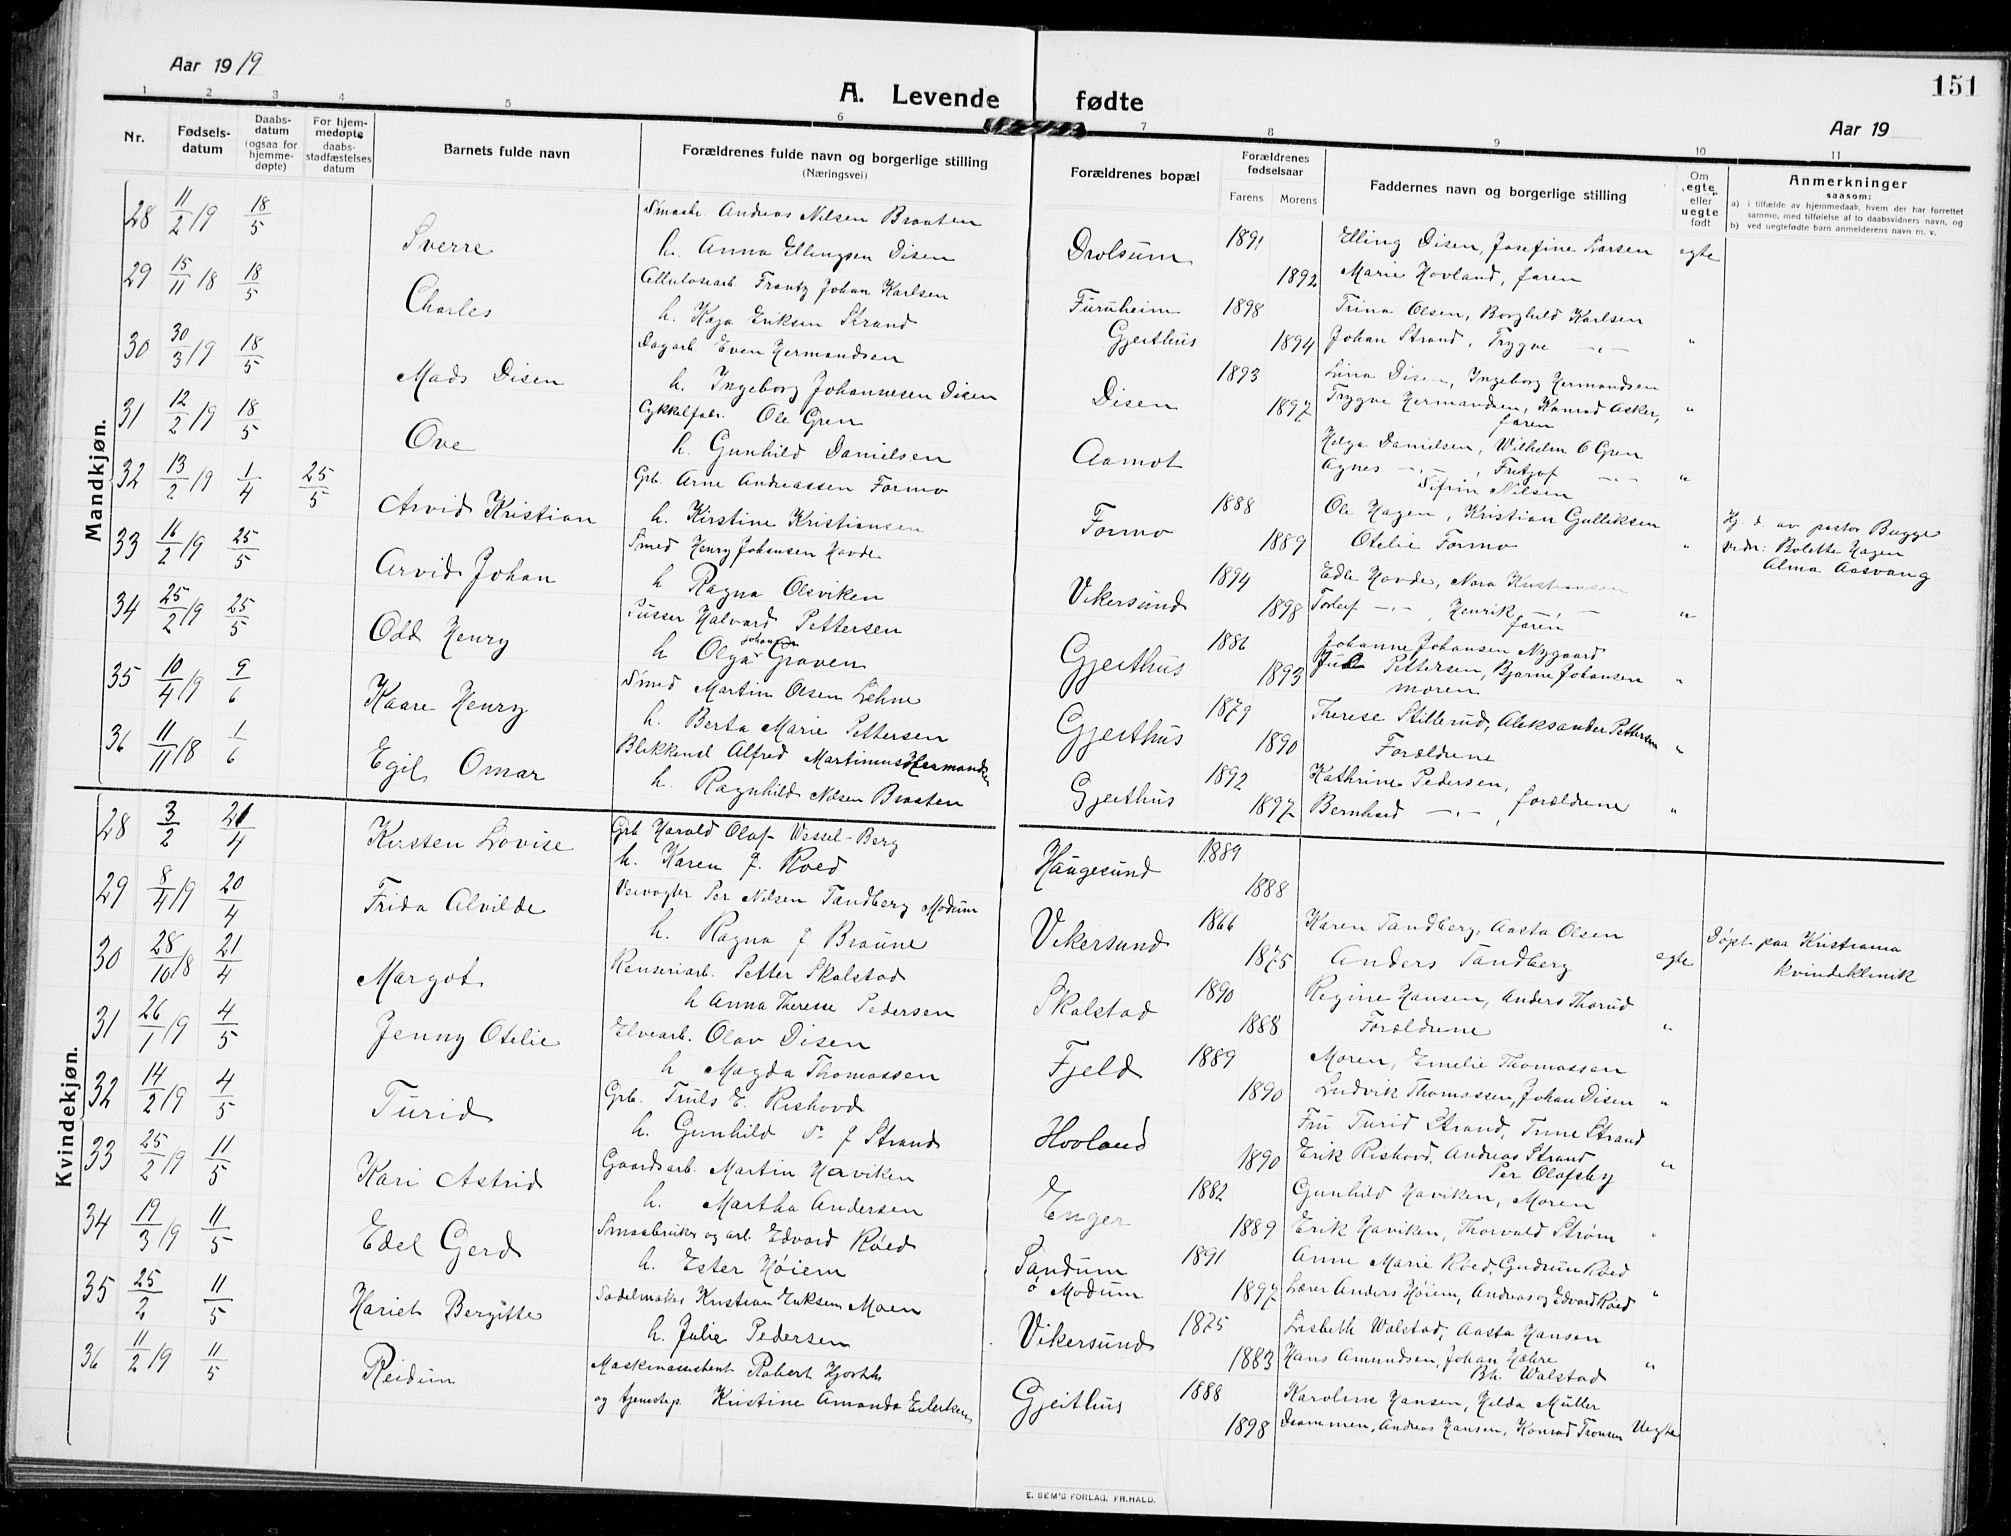 Aar 1919
A. Levende fødte
151
Aar 19
1 2 3 4 5 6 7 8 9 10 11
Nr.
Fødsels-
datum
Daabs-
datum
(ogsaa for
hjemme-
døpte)
For hjem-
medøpte
daabs-
stadfæstelses
datum
Barnets fulde navn
Forældrenes fulde navn og borgerlige stilling
(Næringsvei)
Forældrenes bopæl
Forældrenes
fødselsaar
Farens Morens
Faddernes navn og borgerlige stilling
Om
„egte“
eller
uegte
født
Anmerkninger
saasom:
a) i tilfælde av hjemmedaab, hvem der har forrettet
samme, med tilføielse af to daabsvidners navn, og
b) ved uegtefødte barn anmelderens navn m. v.
Mandkjøn.
28 11/2 19 18/5 Sverre
Smaabr. Andreas Nilsen Braaten
h. Anna Ellingsen Disen
Drolsum 1891 1892
Elling Disen, Josefine Larsen egte
Marie Hovland, faren
29 15/11 18 18/5 Charles
Cellulosearb. Frantz Johan Karlsen
h. Kaja Eriksen Strand
Furuheim
Gjeithus 1898 1894
Trina Olsen, Borghild Karlsen
Johan Strand, Trygve -"- "
30 30/3 19 18/5 Mads Disen
Dagarb. Even Hermandsen
h. Ingeborg Johannesen Disen
Disen 1893 1897
Lina Disen, Ingeborg Hermandsen
Trygve Hermandsen, Konrad Asker, "
faren
31 12/2 19 18/5 Ove
Cykkelfabr. Ole Gren
h. Gunhild Danielsen
Aamot
Helga Danielsen, Wilhelm O Gren
Agnes -"-, Fritjof -"- "
Sifrin Nilsen
32 13/2 19 1/4 25/5 Arvid Kristian
Grb. Arne Andreassen Formo
h. Kirstine Kristiansen
Formo 1888 1889
Ole Hagen, Kristian Gulliksen
Otelie Formo "
Hj. d. av pastor Bugge
vidn: Bolette Hagen
Alma Aasvang
33 16/2 19 25/5 Arvid Johan
Smed Henry Johansen Hovde
h Ragna Olsviken
Vikersund 1894 1898
Edle Hovde, Nora Kristiansen
Torleif -"-, Henrik -"-
faren "
34 25/2 19 25/5 Odd Henry
Pusser Halvard Pettersen
h Olga Johansen Graven
Gjeithus 1886 1893
Johanne Johansen Nygaard
Pettersen, Bjarne Johansen "
moren
35 10/4 19 9/6 Kaare Henry
Smed Martin Olsen Lehne
h. Berta Marie Pettersen
Gjeithus 1879 1890
Therese Stillerud, Aleksander Pettersen "
Forældrene
36 11/11 18 1/6 Egil Omar
Blikkensl Alfred Martinius Hermandsen
h. Ragnhild Nilsen Braaten
Gjeithus 1892 1897
Kathrine Pedersen,
Bernhard -"-, forældrene "
Kvindekjøn.
28 3/2 21/4 Kirsten Lovise
Grb Harald Olaf Wessel-Berg
h. Karen f. Roed
Haugesund 1889 1888
29 8/4 19 20/4 Frida Alvilde
Veivogter Per Nilsen Tandberg Modum
h. Ragna f Braune
Vikersund 1866 1875
Karen Tandberg, Aasta Olsen
Anders Tandberg egte
Døpt paa Kristiania
kvindeklinik
30 28/10 18 21/4 Margot
Renseriarb. Petter Skalstad
h Anna Therese Pedersen
Skalstad 1890 1888
Regine Hansen, Anders Thorud
Forældrene "
31 26/1 19 4/5 Jenny Otelie
Elvearb. Olav Disen
h Magda Thomassen
Fjeld 1889 1890
Moren, Emelie Thomassen
Ludvik Thomassen, Johan Disen "
32 14/2 19 4/5 Turid
Grb. Truls E. Rishovd
h. Gunhild f Strand
Hovland 1890
Fru Turid Strand, Trine Strand
Erik Rishovd, Andreas Strand "
Per Olafsby
33 25/2 19 11/5 Kari Astrid
Gaardsarb. Martin Haviken
h. Martha Andersen
Enger 1882 1889
Gunhild Haviken, Moren
Erik Haviken, Thorvald Strøm "
34 19/3 19 11/5 Edel Gerd
Smaabruker og arb. Edvard Røed
h. Ester Høiem
Sandum
ø Modum 1891 1897
Anne Marie Roed, Gudrun Roed
Lærer Anders Høiem, Andreas og Edvard Røed "
35 25/2 11/5 Hariet Bergitte
Sadelmaker Kristian Eriksen Moen
h. Julie Pedersen
Vikersund 1875 1883
Lisbeth Walstad, Aasta Hansen
Hans Amundsen, Johan Hæhre "
Bh. Walstad
36 11/2 19 11/5 Reidun
Maskinassistent Robert Hjorth
og tjenestep. Kristine Amanda Eilertsen
Gjeithus 1888 1898
Karoline Hansen, Hilda Müller
Drammen, Andreas Hansen, Konrad Tronsen Uegte
E. SEM'S FORLAG, FR.HALD.